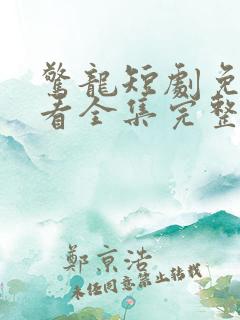 驚龍短劇免
看全集完整
鄭京浩
未经同意禁止转载